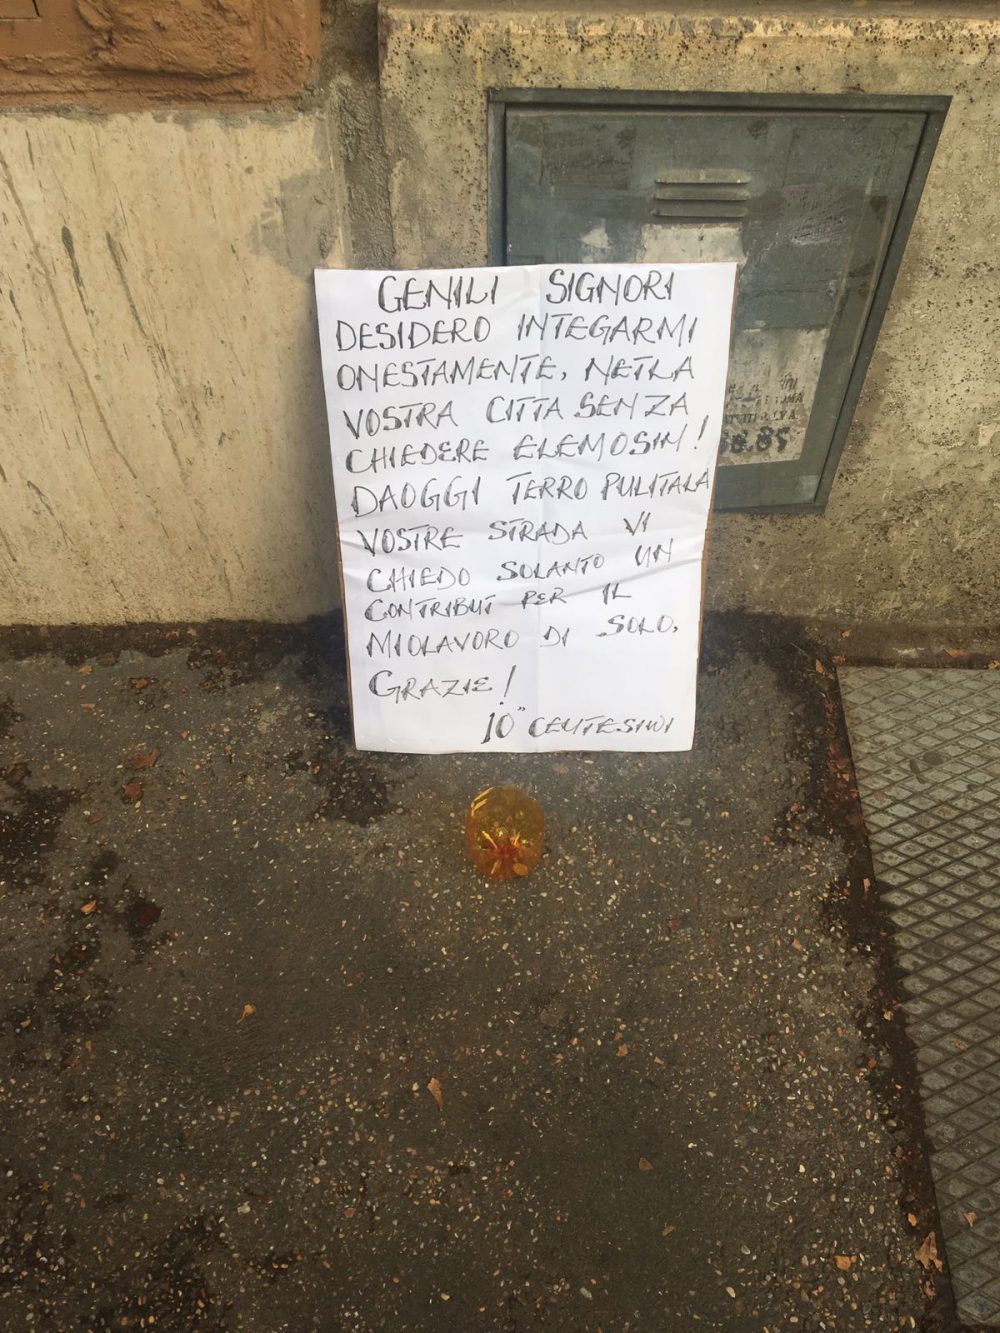 GENILI SIGNORI
DESIDERO INTEGARMI
ONESTAMENTE, NETLA
VOSTRA CITTA SENZA
CHIEDERE ELEMOSIM!
DAOGGI TERRO PULITALA
VOSTRE STRADA VI
CHIEDO SOLANTO UN
CONTRIBUT PER IL
MIOLAVORO DI SOLO,
GRAZIE!
10" CENTESIMI